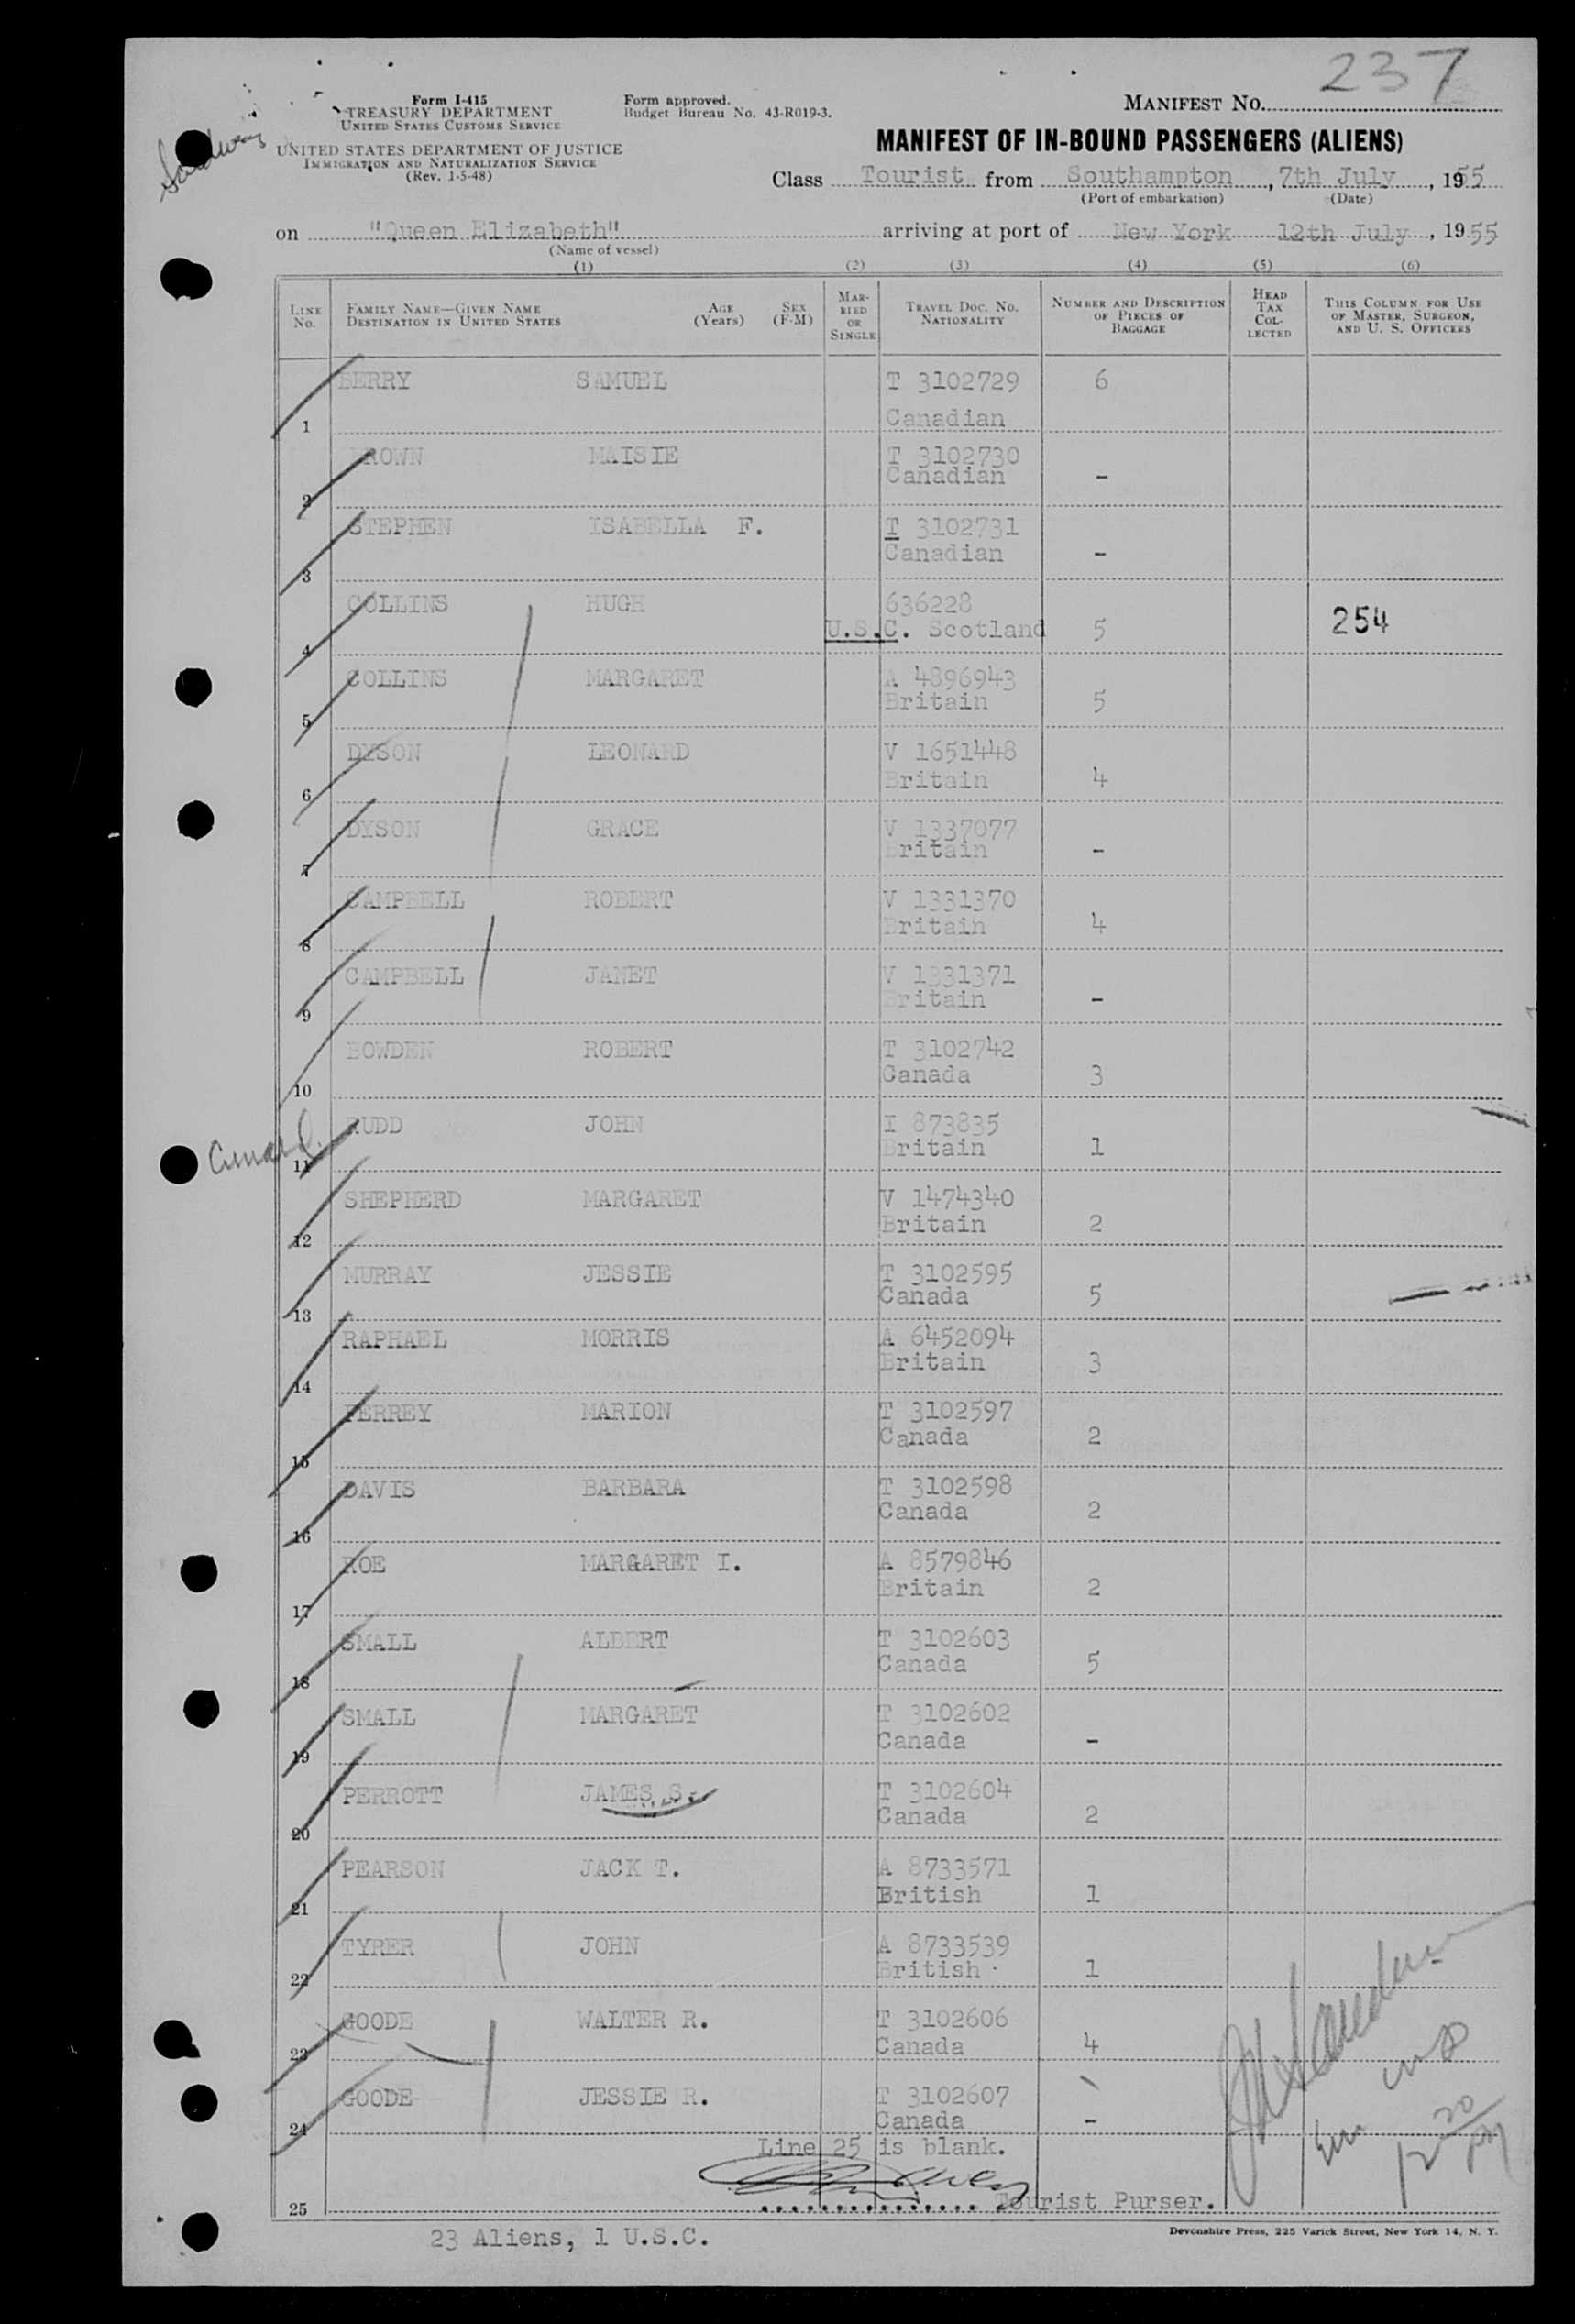 237
Form I-415
TREASURY DEPARTMENT
UNITED STATES CUSTOMS SERVICE
UNITED STATES DEPARTMENT OF JUSTICE
IMMIGRATION AND NATURALIZATION SERVICE
(Rev. 1-5-48)
Form approved.
Budget Bureau No. 43-R019-3.
MANIFEST NO.
MANIFEST OF IN-BOUND PASSENGERS (ALIENS)
Class Tourist from Southampton, 7th July, 1955
(Port of embarkation) (Date)
on "Queen Elizabeth" arriving at port of New York 12th July, 1955
(Name of vessel)
(1) (2) (3) (4) (5) (6)
LINE No. FAMILY NAME—GIVEN NAME DESTINATION IN UNITED STATES AGE (Years) SEX (F-M) MARRIED OR SINGLE TRAVEL DOC. NO. NATIONALITY NUMBER AND DESCRIPTION OF PIECES OF BAGGAGE HEAD TAX COLLECTED THIS COLUMN FOR USE OF MASTER, SURGEON, AND U. S. OFFICERS
BERRY SAMUEL T 3102729 6
1 Canadian
BROWN MAISIE T 3102730
2 Canadian -
STEPHEN ISABELLA F. T 3102731
3 Canadian -
COLLINS HUGH 636228
4 U.S.C. Scotland 5 254
COLLINS MARGARET A 4896943
5 Britain 5
DYSON LEONARD V 1651448
6 Britain 4
DYSON GRACE V 1337077
7 Britain -
CAMPBELL ROBERT V 1331370
8 Britain 4
CAMPBELL JANET V 1331371
9 Britain -
BOWDEN ROBERT T 3102742
10 Canada 3
RUDD JOHN I 873835
Cunard. 11 Britain 1
SHEPHERD MARGARET V 1474340
12 Britain 2
MURRAY JESSIE T 3102595
13 Canada 5
RAPHAEL MORRIS A 6452094
14 Britain 3
PERREY MARION T 3102597
15 Canada 2
DAVIS BARBARA T 3102598
16 Canada 2
ROE MARGARET I. A 8579846
17 Britain 2
SMALL ALBERT T 3102603
18 Canada 5
SMALL MARGARET T 3102602
19 Canada -
PERROTT JAMES S. T 3102604
20 Canada 2
PEARSON JACK T. A 8733571
21 British 1
TYRER JOHN A 8733539
22 British 1
GOODE WALTER R. T 3102606
23 Canada 4
GOODE JESSIE R. T 3102607
24 Canada -
Line 25 is blank.
25 Tourist Purser.
23 Aliens, 1 U.S.C.
Devonshire Press, 225 Varick Street, New York 14, N. Y.